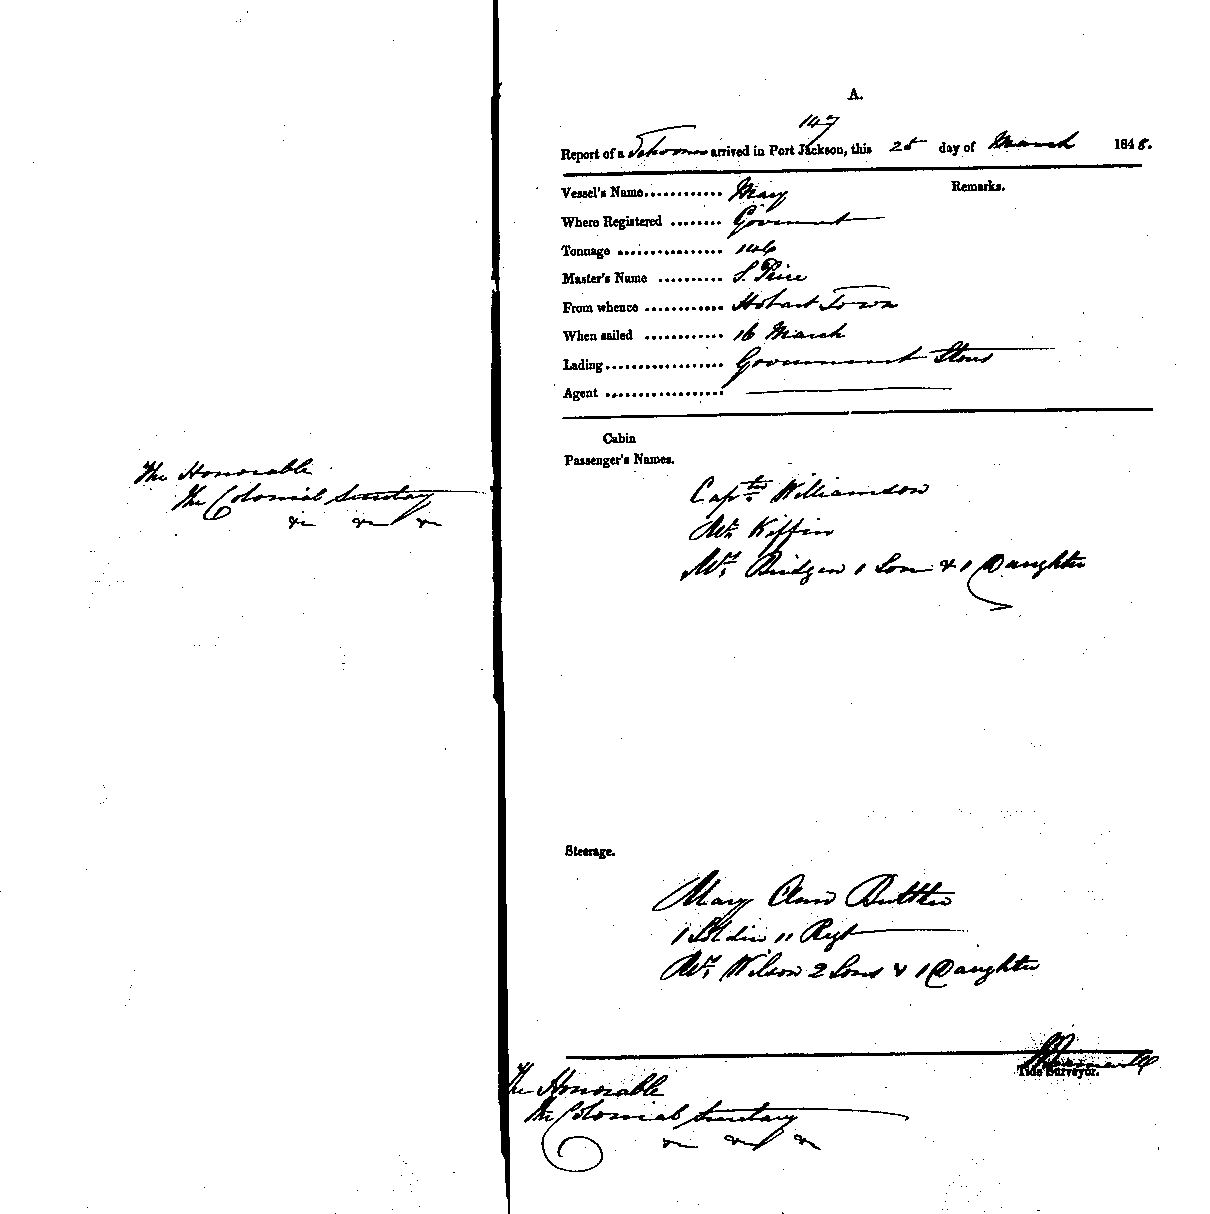 The Honorable
The Colonial Secretary
&c &c &c
A.
147
Report of a Schooner arrived in Port Jackson, this 25 day of March 1848.
Vessel's Name............ Mary
Remarks.
Where Registered ........ Goverment
Tonnage ................ 146
Master's Name .......... S. Price
From whence ............ Hobart Town
When sailed ............ 16 March
Lading.................. Government Stores
Agent ..................
Cabin
Passenger's Names.
Captn Williamson
Mr Kiffin
Mrs Bridgen 1 Son & 1 Daughter
Steerage.
Mary Ann
1 Soldier 11 Regt
Mrs Wilson 2 Sons & 1 Daughter
Tide Surveyor.
The Honorable
The Colonial Secretary
&c &c &c